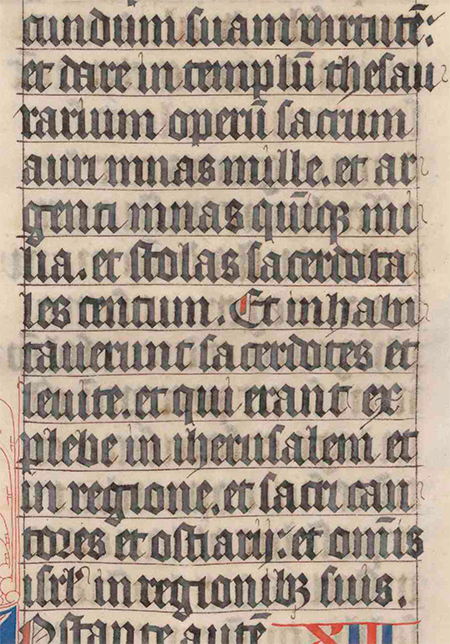 cundum suam virtutē:
et dare in templū thesau
rarium operū sacrum
auri mnas mille. et ar
genti mnas quīq3 mi
lia. et stolas sacerdota
les centum. Et inhabi
taverunt sacerdotes et
levite. et qui erant ex
plebe in iherusalem et
in regione. et sacri can
tores et ostiarij: et om̄is
isrl' in regionib3 suis.
Nstante autē XII